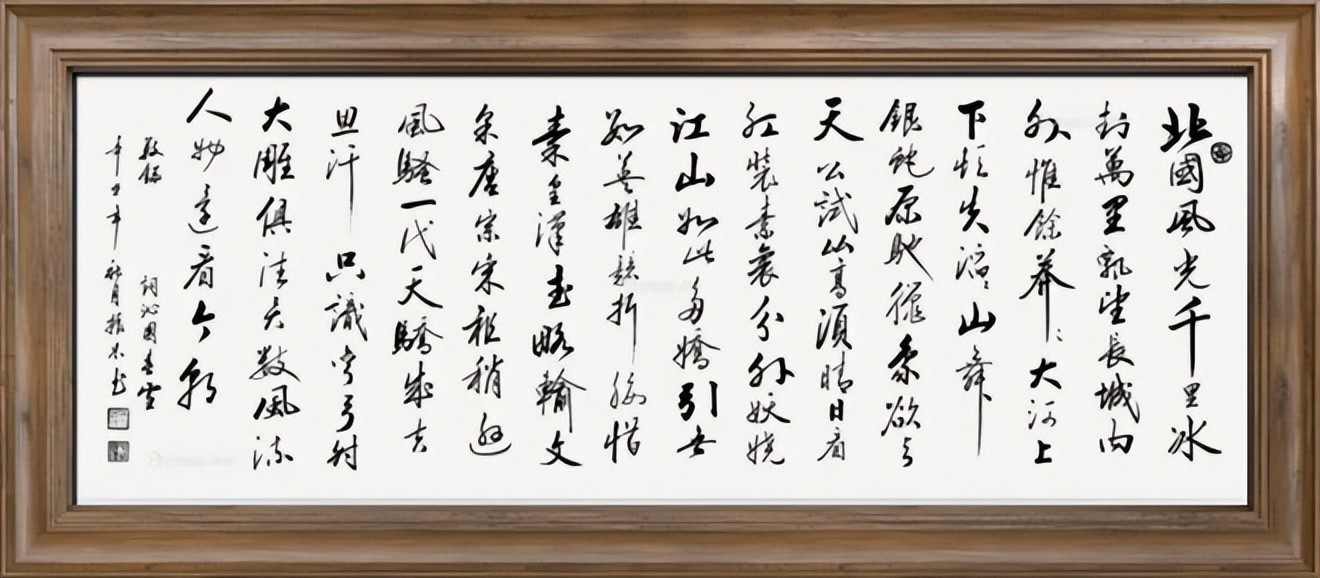 北國風光千里冰
封萬里飄望長城内
外惟餘莽〻大河上
下頓失滔〻山舞
銀蛇原馳蠟象欲与
天公試比高須晴日看
紅裝素裹分外妖嬈
江山如此多嬌引無
數英雄競折腰惜
秦皇漢武略輸文
采唐宗宋祖稍遜
風騷一代天驕成吉
思汗只識彎弓射
大雕俱往矣數風流
人物還看今朝
敬錄 詞沁園春雪
辛丑年 秋月振书